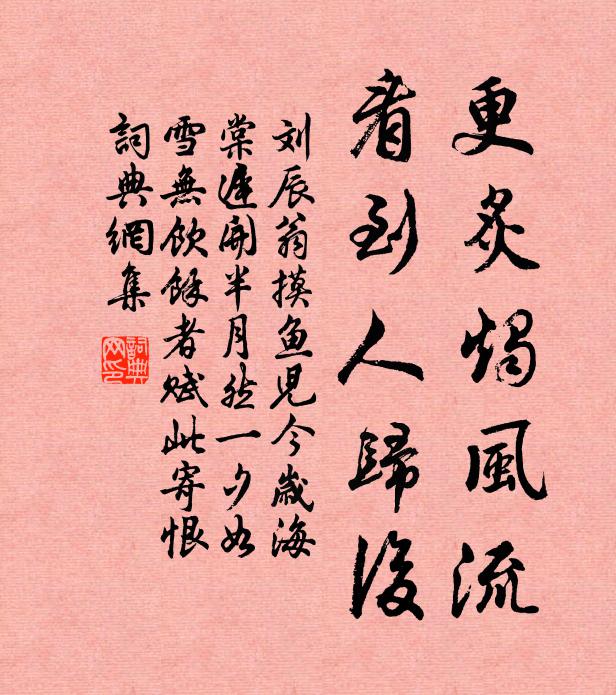 更炙燭風流
看到人歸後
刘辰翁摸鱼児今歳海
棠遲開半月然一夕如
雪無飲餘者赋此寄恨
詞典網集
詞典網印